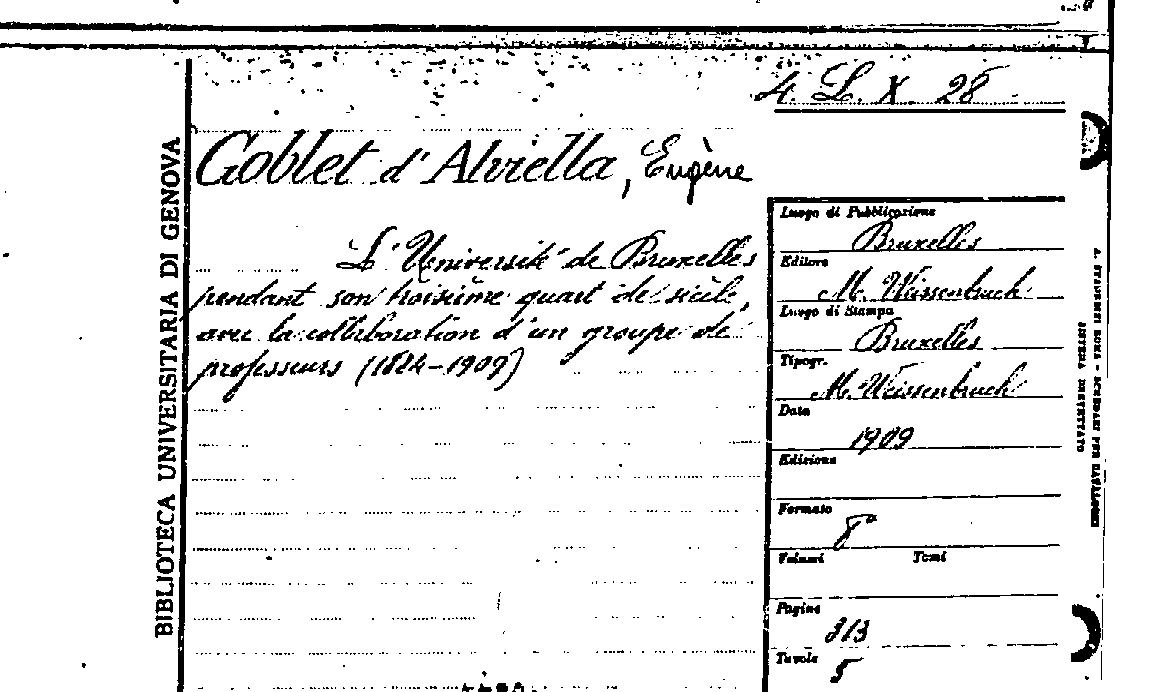 4. L. X 28
Goblet d'Alviella, Eugène
L'Université de Bruxelles
pendant son troisième quart de siècle,
avec la collaboration d'un groupe de
professeurs (1884-1909)
BIBLIOTECA UNIVERSITARIA DI GENOVA
Luogo di Pubblicazione
Bruxelles
Editore
M. Weissenbruch
Luogo di Stampa
Bruxelles
Tipogr.
M. Weissenbruch
Data
1909
Edizione
Formato
8°
Volumi Tomi
Pagine
313
Tavole
5